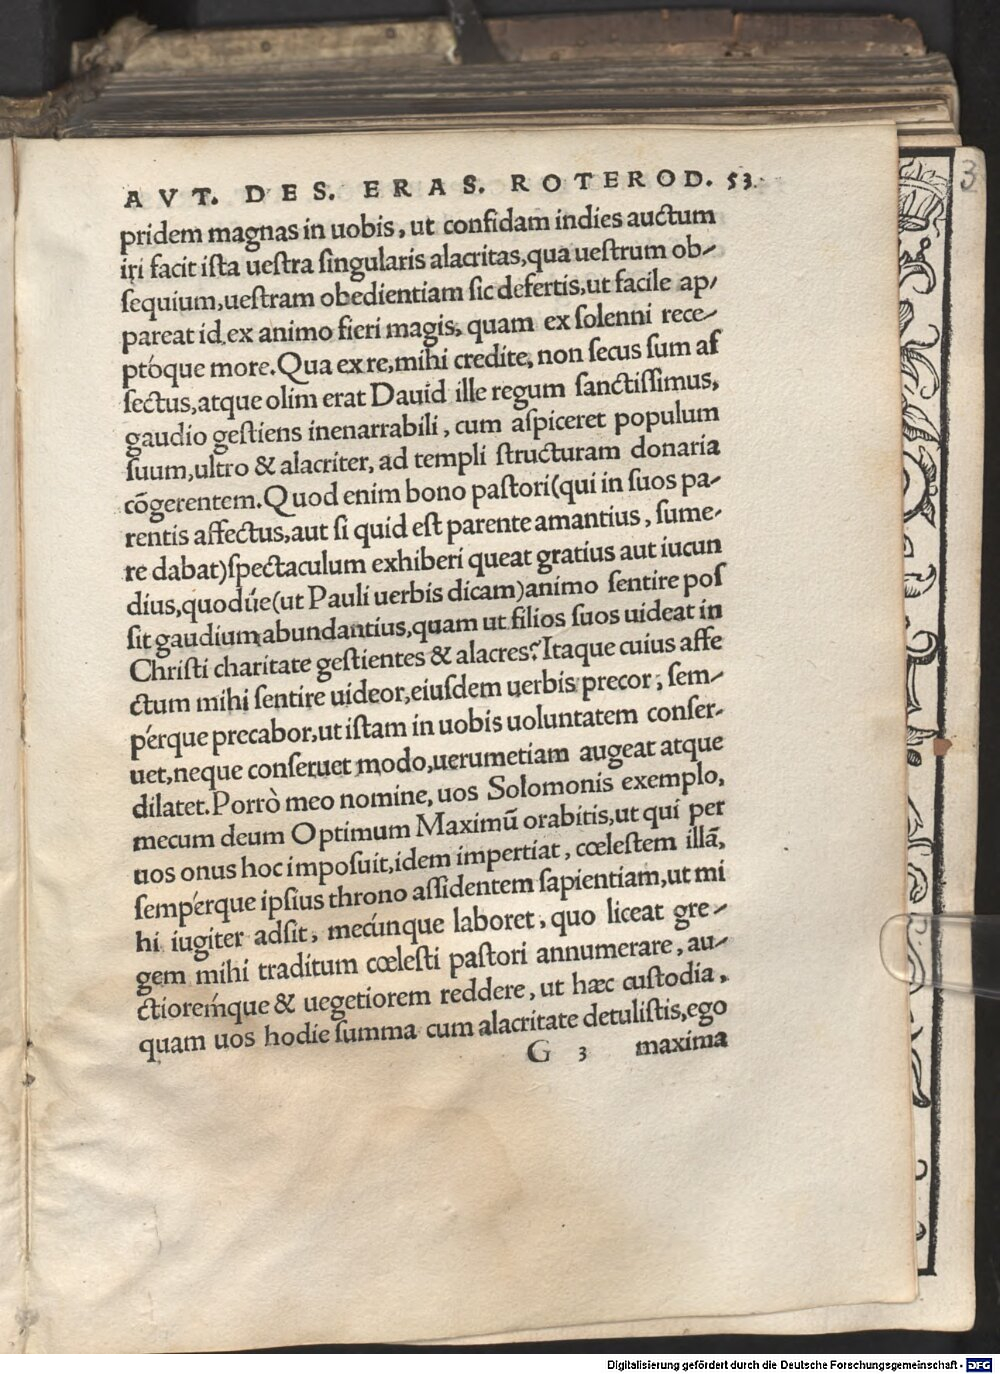 AVT. DES. ERAS. ROTEROD. 53.
pridem magnas in uobis, ut confidam indies auctum
iri facit ista uestra singularis alacritas, qua uestrum ob-
sequium, uestram obedientiam sic defertis, ut facile ap-
pareat id ex animo fieri magis, quam ex solenni rece-
ptóque more. Qua ex re, mihi credite, non secus sum af
fectus, atque olim erat Dauid ille regum sanctissimus,
gaudio gestiens inenarrabili, cum aspiceret populum
suum, ultro & alacriter, ad templi structuram donaria
cõgerentem. Quod enim bono pastori (qui in suos pa-
rentis affectus, aut si quid est parente amantius, sume-
re dabat) spectaculum exhiberi queat gratius aut iucun
dius, quodúe (ut Pauli uerbis dicam) animo sentire pos
sit gaudium abundantius, quam ut filios suos uideat in
Christi charitate gestientes & alacres? Itaque cuius affe
ctum mihi sentire uideor, eiusdem uerbis precor, sem-
pérque precabor, ut istam in uobis uoluntatem conser-
uet, neque conseruet modo, uerumetiam augeat atque
dilatet. Porrò meo nomine, uos Solomonis exemplo,
mecum deum Optimum Maximũ orabitis, ut qui per
uos onus hoc imposuit, idem impertiat, cœlestem illã,
sempérque ipsius throno assidentem sapientiam, ut mi
hi iugiter adsit, mecúnque laboret, quo liceat gre-
gem mihi traditum cœlesti pastori annumerare, au-
ctiorémque & uegetiorem reddere, ut hæc custodia,
quam uos hodie summa cum alacritate detulistis, ego
G 3 maxima
3
Digitalisierung gefördert durch die Deutsche Forschungsgemeinschaft - DFG